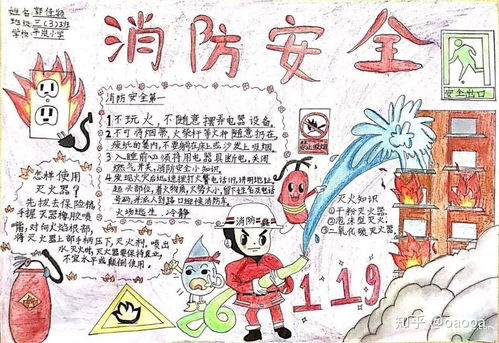 姓名:郭佳颖
班级:三(3)班
学校:平岚小学
消防安全
安全出口
消防安全第一
1 不玩火,不随意摆弄电器设备。
2 不可将烟蒂,火柴杆等火种随意扔在
废纸的篓内,不要躺在床上或沙发上吸烟。
3 入睡前必须将用电器具断电,关闭
燃气开关,消防安全小知识。
4 发现火灾迅速拨打火警电话119,讲明地址
起火部位,着火物质,火势大小,留下姓名及电话
号码,并派人到路口迎候消防车。
火场逃生:冷静
禁止吸烟
怎样使用
灭火器?
先拔去保险销
手握灭器橡胶喷
嘴,对向火焰根部,
将灭火器上部手柄压下,灭火剂,喷出
水灭火时,灭火器要保持直立,
不宜水平或颠倒使用。
消防
灭火知识
①干粉灭火器。
②泡沫灭火器。
③二氧化碳灭火器。
119
知乎 @oaooa